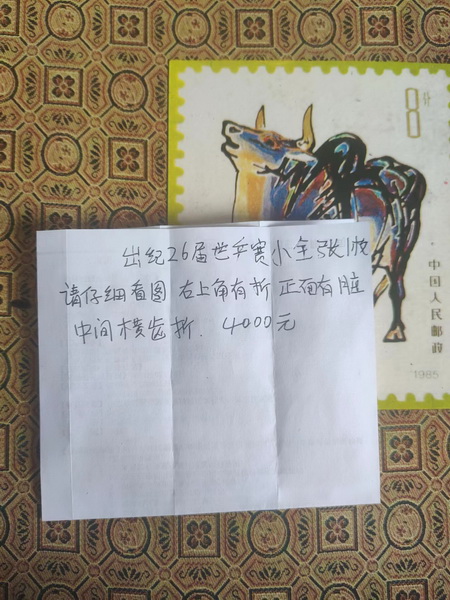 8分
出纪26届世乒赛小全张1枚
请仔细看图 右上角有折 正面有脏
中间横齿折. 4000元
中国人民邮政
1985